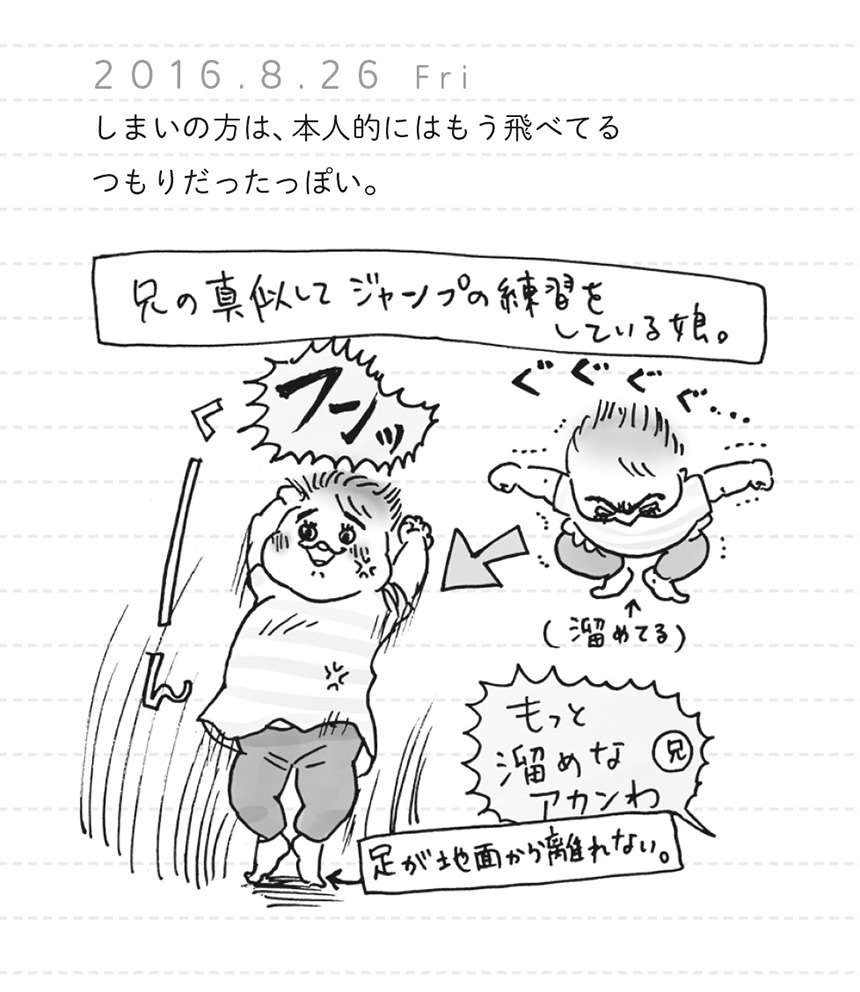 2016.8.26 Fri
しまいの方は、本人的にはもう飛べてる
つもりだったっぽい。
兄の真似してジャンプの練習を
している娘。
ぐぐぐぐ…
(溜めてる)
フンッ
くーん
もっと
溜めな
アカンわ
兄
足が地面から離れない。